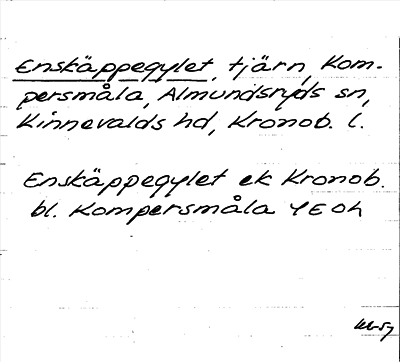 Enskäppegylet, tjärn, Kom-
persmåla, Almundsryds sn,
Kinnevalds hd, Kronob. l.
Enskäppegylet ek Kronob.
bl. Kompersmåla YEoh